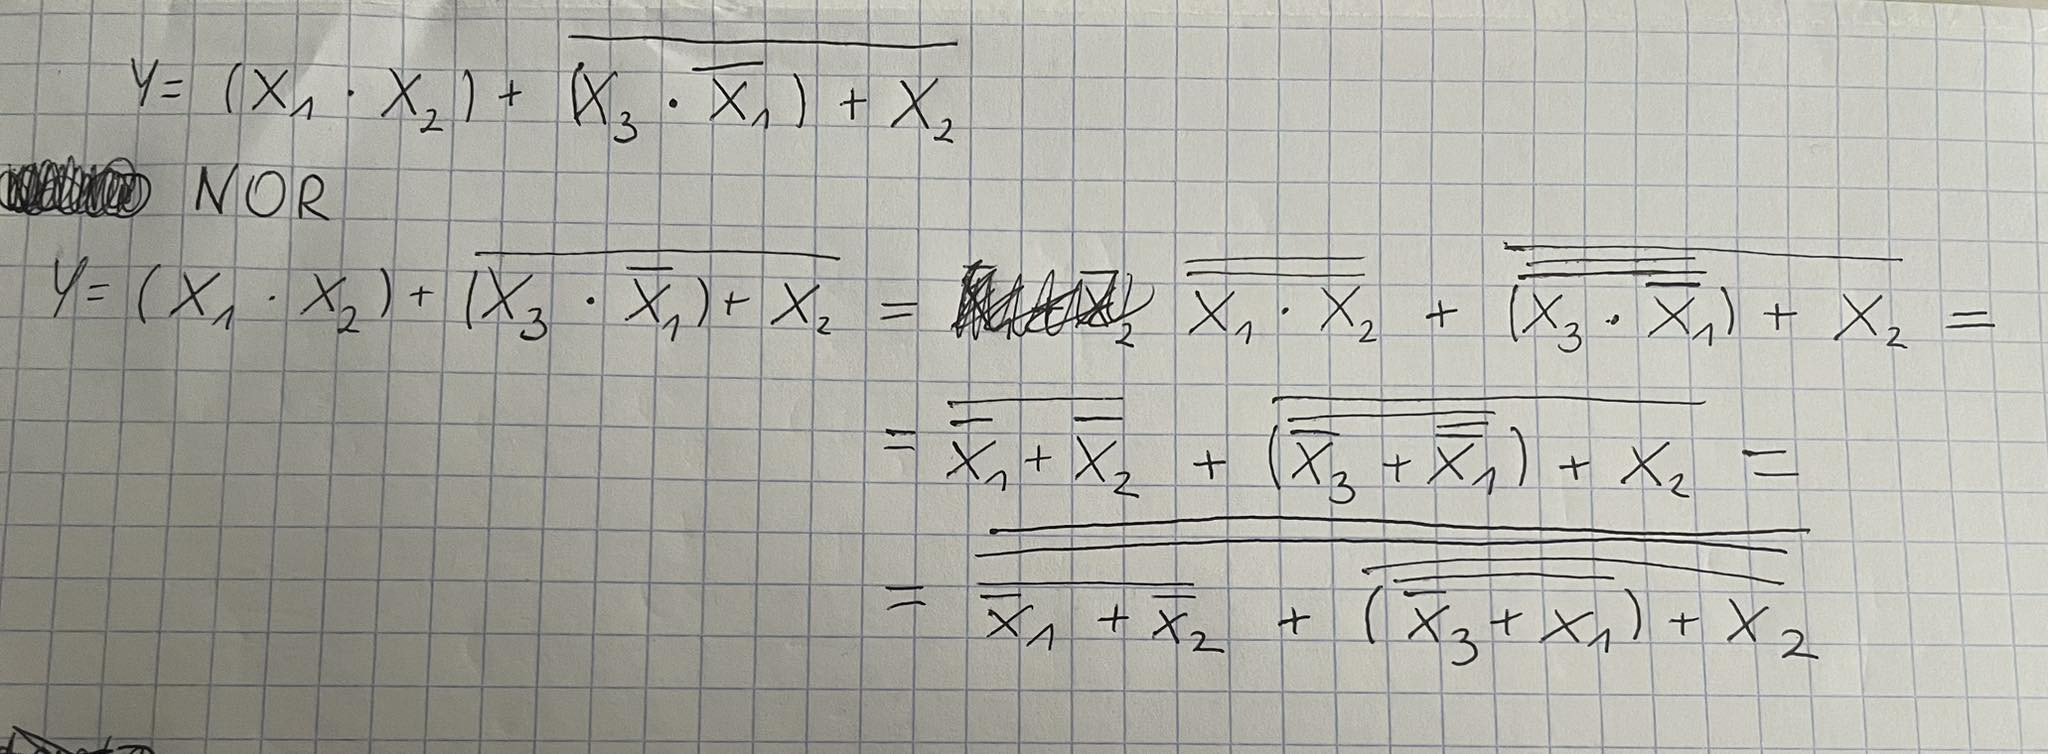 Y = (X₁ · X₂) + \overline{(X₃ · \overline{X₁}) + X₂}
NOR
Y = (X₁ · X₂) + \overline{(X₃ · \overline{X₁}) + X₂} = \overline{\overline{X₁ · X₂}} + \overline{\overline{\overline{(X₃ · \overline{X₁})}} + X₂} =
= \overline{\overline{X₁} + \overline{X₂}} + \overline{(\overline{\overline{\overline{X₃} + \overline{\overline{X₁}}}}) + X₂} =
= \overline{\overline{\overline{\overline{X₁} + \overline{X₂}} + \overline{(\overline{\overline{X₃} + X₁}) + X₂}}}